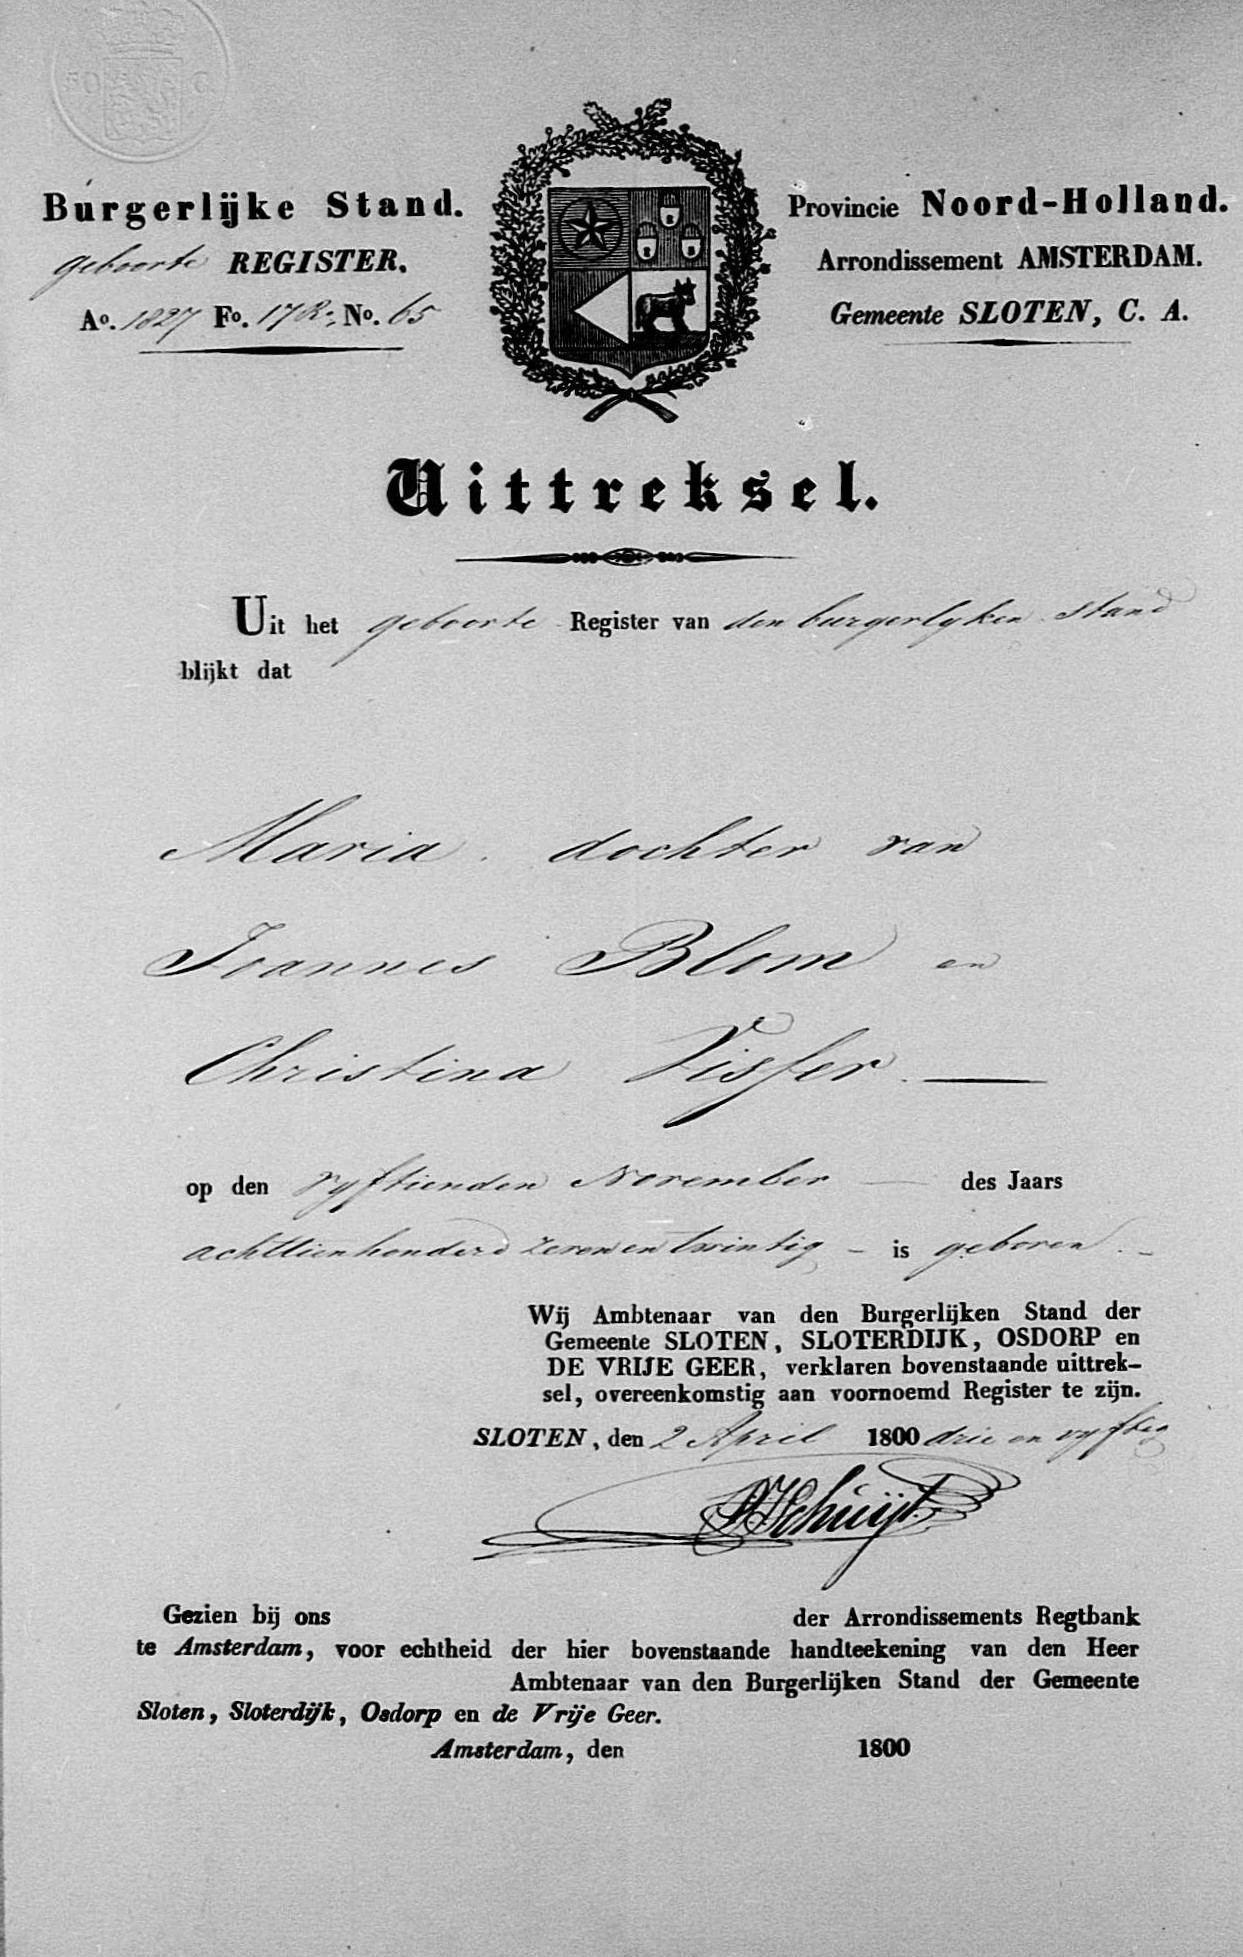 50 C
Burgerlijke Stand.
geboorte REGISTER.
Ao. 1827 Fo. 17 R: No. 65
Provincie Noord-Holland.
Arrondissement AMSTERDAM.
Gemeente SLOTEN, C. A.
Uittreksel.
Uit het geboorte Register van den burgerlyken stand
blijkt dat
Maria. dochter van
Joannes Blom en
Christina Visser. —
op den vyftienden November — des Jaars
achttienhonderd zevenentwintig – is geboren. –
Wij Ambtenaar van den Burgerlijken Stand der
Gemeente SLOTEN, SLOTERDIJK, OSDORP en
DE VRIJE GEER, verklaren bovenstaande uittrek-
sel, overeenkomstig aan voornoemd Register te zijn.
SLOTEN, den 2 April 1800 drie en vyftig
Schuijt
Gezien bij ons der Arrondissements Regtbank
te Amsterdam, voor echtheid der hier bovenstaande handteekening van den Heer
Ambtenaar van den Burgerlijken Stand der Gemeente
Sloten, Sloterdijk, Osdorp en de Vrije Geer.
Amsterdam, den 1800